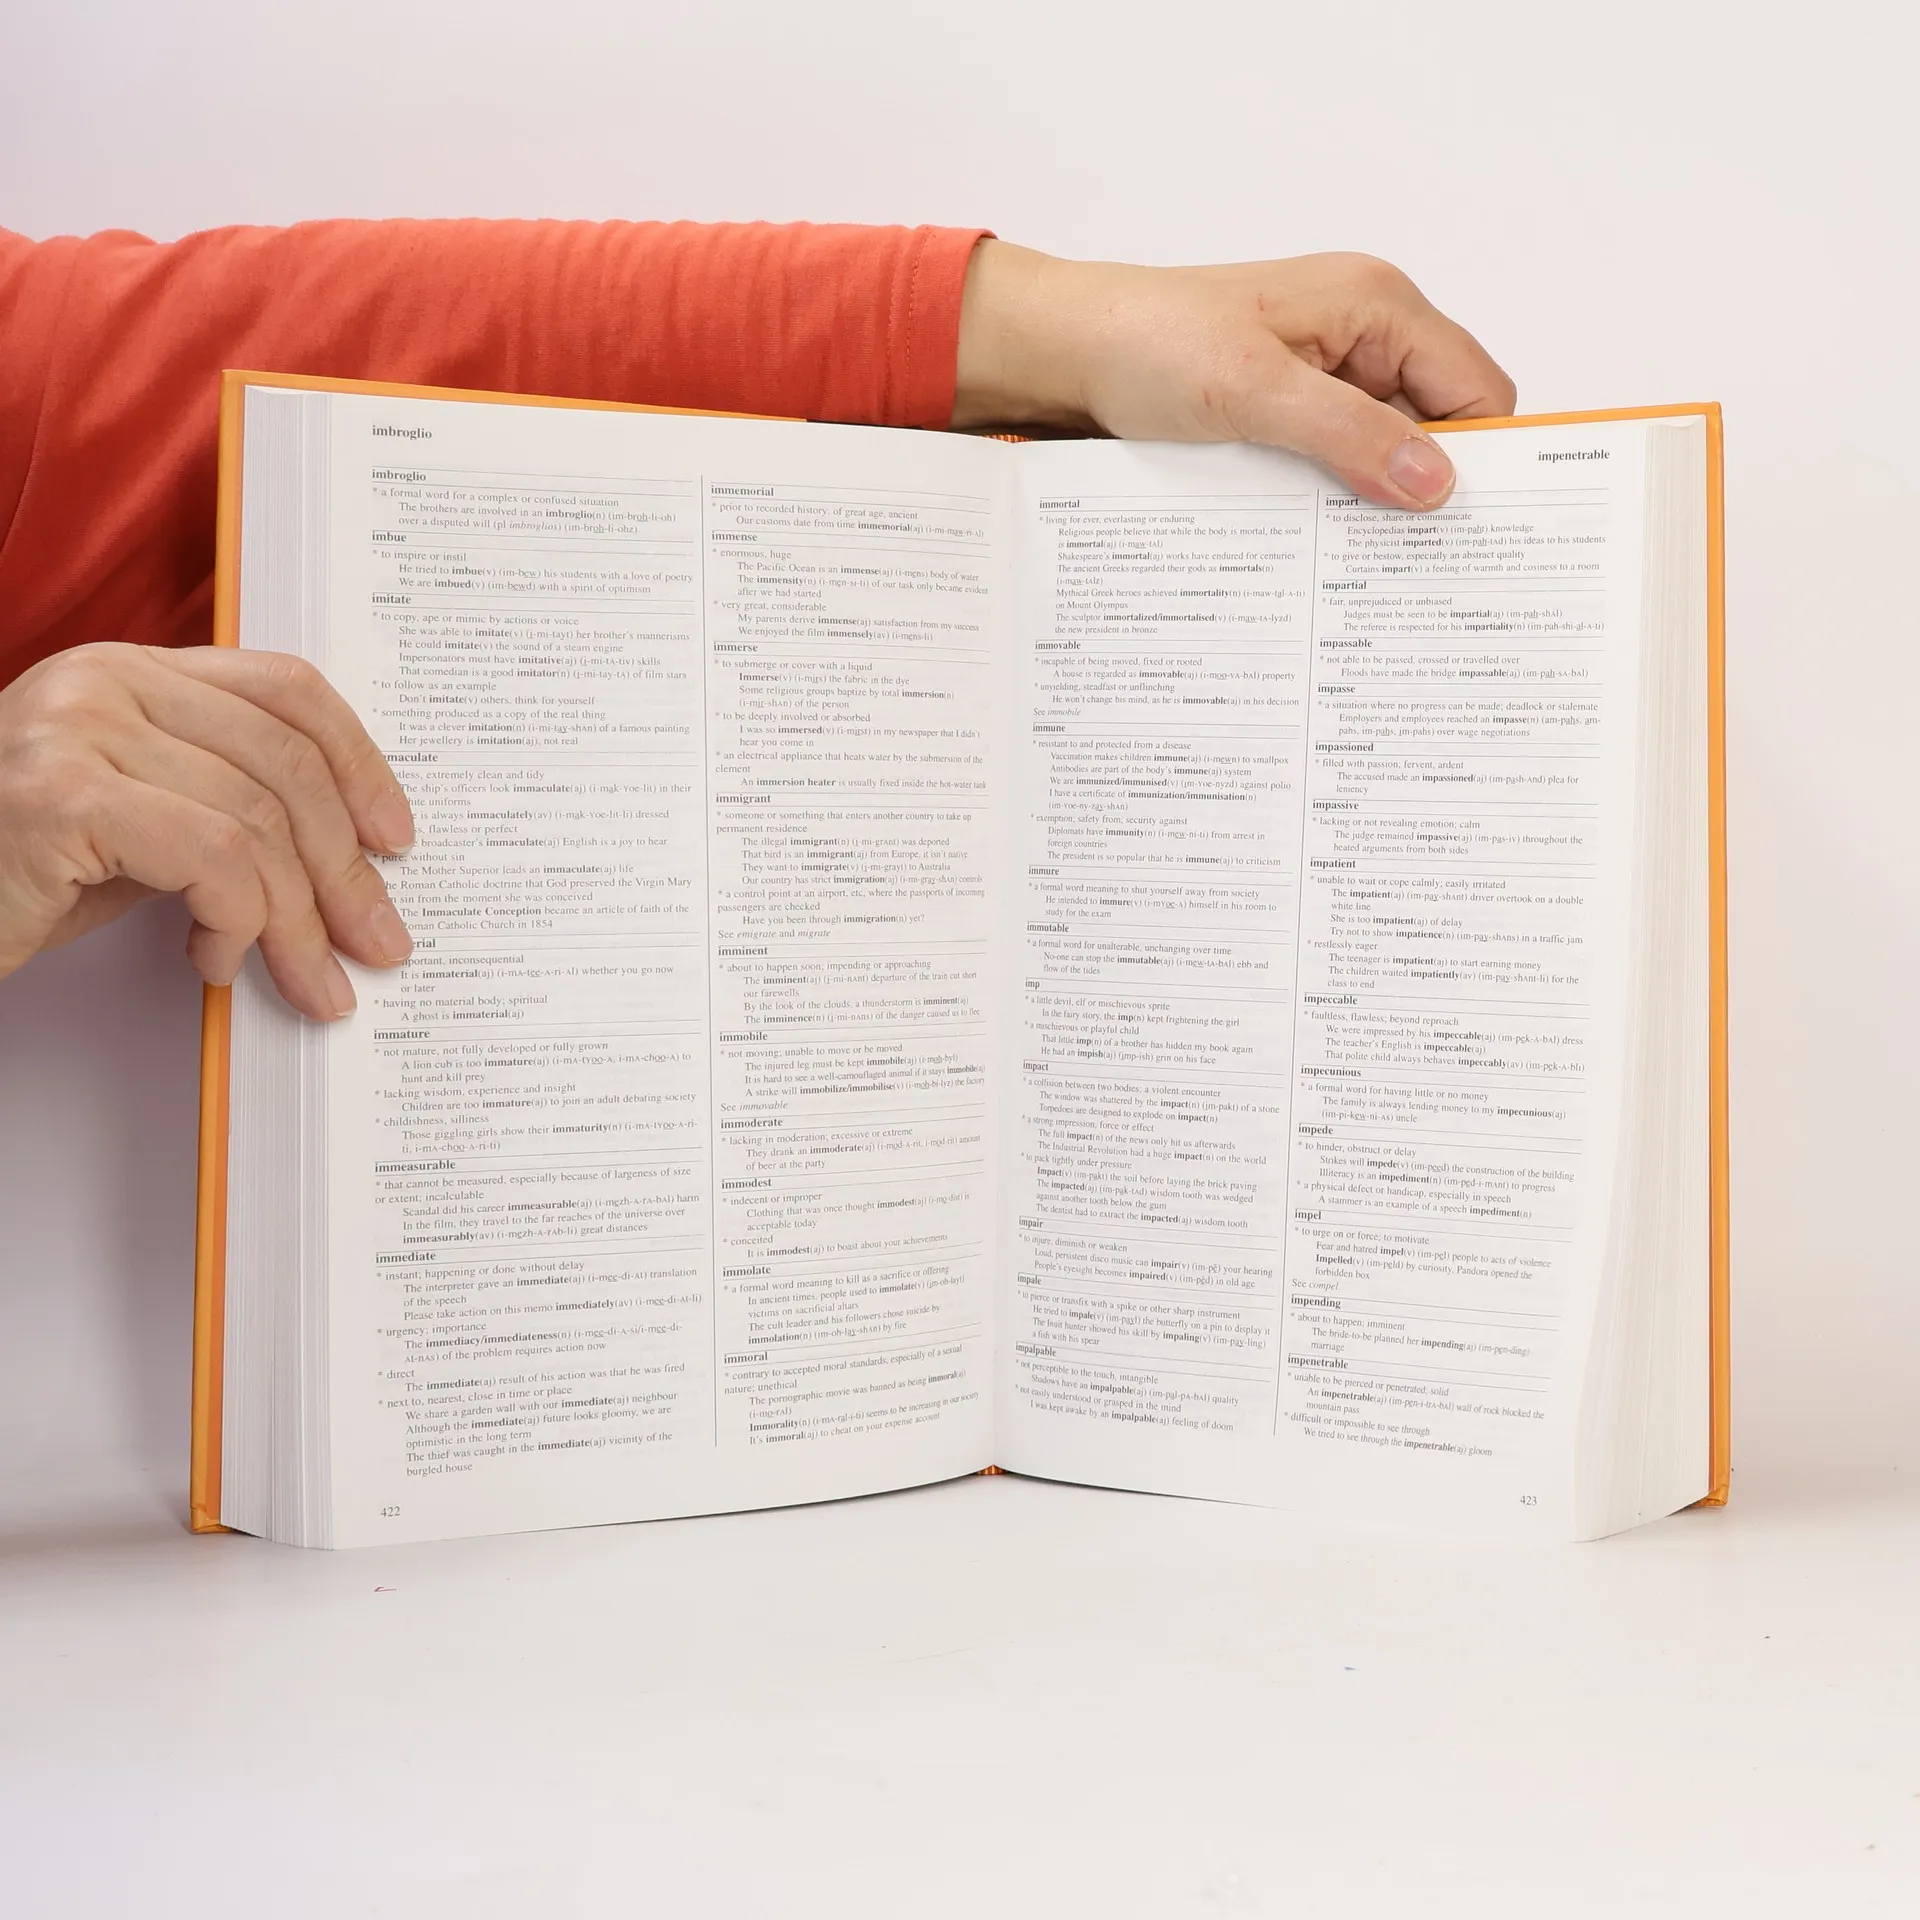 imbroglio
imbroglio
* a formal word for a complex or confused situation
The brothers are involved in an imbroglio(n) (im-broh-li-oh)
over a disputed will (pl imbroglios) (im-broh-li-ohz)
imbue
* to inspire or instil
He tried to imbue(v) (im-bew) his students with a love of poetry
We are imbued(v) (im-bewd) with a spirit of optimism
imitate
* to copy, ape or mimic by actions or voice
She was able to imitate(v) (i-mi-tayt) her brother's mannerisms
He could imitate(v) the sound of a steam engine
Impersonators must have imitative(aj) (i-mi-tA-tiv) skills
That comedian is a good imitator(n) (i-mi-tay-tA) of film stars
* to follow as an example
Don't imitate(v) others, think for yourself
* something produced as a copy of the real thing
It was a clever imitation(n) (i-mi-tay-shAn) of a famous painting
Her jewellery is imitation(aj), not real
maculate
otless, extremely clean and tidy
The ship's officers look immaculate(aj) (i-mak-Yoe-lit) in their
hite uniforms
e is always immaculately(av) (i-mak-Yoe-lit-li) dressed
s, flawless or perfect
e broadcaster's immaculate(aj) English is a joy to hear
* pure; without sin
The Mother Superior leads an immaculate(aj) life
he Roman Catholic doctrine that God preserved the Virgin Mary
n sin from the moment she was conceived
The Immaculate Conception became an article of faith of the
oman Catholic Church in 1854
erial
portant, inconsequential
It is immaterial(aj) (i-mA-tee-A-ri-Al) whether you go now
or later
* having no material body; spiritual
A ghost is immaterial(aj)
immature
* not mature, not fully developed or fully grown
A lion cub is too immature(aj) (i-mA-tyoo-A, i-mA-choo-A) to
hunt and kill prey
* lacking wisdom, experience and insight
Children are too immature(aj) to join an adult debating society
* childishness, silliness
Those giggling girls show their immaturity(n) (i-mA-tyoo-A-ri-
ti, i-mA-choo-A-ri-ti)
immeasurable
* that cannot be measured, especially because of largeness of size
or extent; incalculable
Scandal did his career immeasurable(aj) (i-mezh-A-rA-bAl) harm
In the film, they travel to the far reaches of the universe over
immeasurably(av) (i-mezh-A-rAb-li) great distances
immediate
* instant; happening or done without delay
The interpreter gave an immediate(aj) (i-mee-di-At) translation
of the speech
Please take action on this memo immediately(av) (i-mee-di-At-li)
* urgency; importance
The immediacy/immediateness(n) (i-mee-di-A-si/i-mee-di-
At-nAs) of the problem requires action now
* direct
The immediate(aj) result of his action was that he was fired
* next to, nearest, close in time or place
We share a garden wall with our immediate(aj) neighbour
Although the immediate(aj) future looks gloomy, we are
optimistic in the long term
The thief was caught in the immediate(aj) vicinity of the
burgled house
422
immemorial
* prior to recorded history; of great age, ancient
Our customs date from time immemorial(aj) (i-mi-maw-ri-Al)
immense
* enormous, huge
The Pacific Ocean is an immense(aj) (i-mens) body of water
The immensity(n) (i-men-si-ti) of our task only became evident
after we had started
* very great, considerable
My parents derive immense(aj) satisfaction from my success
We enjoyed the film immensely(av) (i-mens-li)
immerse
* to submerge or cover with a liquid
Immerse(v) (i-mirs) the fabric in the dye
Some religious groups baptize by total immersion(n)
(i-mir-shAn) of the person
* to be deeply involved or absorbed
I was so immersed(v) (i-mirst) in my newspaper that I didn't
hear you come in
* an electrical appliance that heats water by the submersion of the
element
An immersion heater is usually fixed inside the hot-water tank
immigrant
* someone or something that enters another country to take up
permanent residence
The illegal immigrant(n) (i-mi-grAnt) was deported
That bird is an immigrant(aj) from Europe, it isn't native
They want to immigrate(v) (i-mi-grayt) to Australia
Our country has strict immigration(aj) (i-mi-gray-shAn) controls
* a control point at an airport, etc, where the passports of incoming
passengers are checked
Have you been through immigration(n) yet?
See emigrate and migrate
imminent
* about to happen soon; impending or approaching
The imminent(aj) (i-mi-nAnt) departure of the train cut short
our farewells
By the look of the clouds, a thunderstorm is imminent(aj)
The imminence(n) (i-mi-nAns) of the danger caused us to flee
immobile
* not moving; unable to move or be moved
The injured leg must be kept immobile(aj) (i-moh-byl)
It is hard to see a well-camouflaged animal if it stays immobile(aj)
A strike will immobilize/immobilise(v) (i-moh-bi-lyz) the factory
See immovable
immoderate
* lacking in moderation; excessive or extreme
They drank an immoderate(aj) (i-mod-A-rit, i-mod-rit) amount
of beer at the party
immodest
* indecent or improper
Clothing that was once thought immodest(aj) (i-mo-dist) is
acceptable today
* conceited
It is immodest(aj) to boast about your achievements
immolate
* a formal word meaning to kill as a sacrifice or offering
In ancient times, people used to immolate(v) (im-oh-layt)
victims on sacrificial altars
The cult leader and his followers chose suicide by
immolation(n) (im-oh-lay-shAn) by fire
immoral
* contrary to accepted moral standards, especially of a sexual
nature; unethical
The pornographic movie was banned as being immoral(aj)
(i-mo-rAl)
Immorality(n) (i-mA-ral-i-ti) seems to be increasing in our society
It's immoral(aj) to cheat on your expense account
impenetrable
immortal
* living for ever, everlasting or enduring
Religious people believe that while the body is mortal, the soul
is immortal(aj) (i-maw-tAl)
Shakespeare's immortal(aj) works have endured for centuries
The ancient Greeks regarded their gods as immortals(n)
(i-maw-tAlz)
Mythical Greek heroes achieved immortality(n) (i-maw-tal-A-ti)
on Mount Olympus
The sculptor immortalized/immortalised(v) (i-maw-tA-lyzd)
the new president in bronze
immovable
* incapable of being moved, fixed or rooted
A house is regarded as immovable(aj) (i-moo-vA-bAl) property
* unyielding, steadfast or unflinching
He won't change his mind, as he is immovable(aj) in his decision
See immobile
immune
* resistant to and protected from a disease
Vaccination makes children immune(aj) (i-mewn) to smallpox
Antibodies are part of the body's immune(aj) system
We are immunized/immunised(v) (im-Yoe-nyzd) against polio
I have a certificate of immunization/immunisation(n)
(im-Yoe-ny-zay-shAn)
* exemption; safety from; security against
Diplomats have immunity(n) (i-mew-ni-ti) from arrest in
foreign countries
The president is so popular that he is immune(aj) to criticism
immure
* a formal word meaning to shut yourself away from society
He intended to immure(v) (i-myoe-A) himself in his room to
study for the exam
immutable
* a formal word for unalterable, unchanging over time
No-one can stop the immutable(aj) (i-mew-tA-bAl) ebb and
flow of the tides
imp
* a little devil, elf or mischievous sprite
In the fairy story, the imp(n) kept frightening the girl
* a mischievous or playful child
That little imp(n) of a brother has hidden my book again
He had an impish(aj) (imp-ish) grin on his face
impact
* a collision between two bodies; a violent encounter
The window was shattered by the impact(n) (im-pakt) of a stone
Torpedoes are designed to explode on impact(n)
* a strong impression, force or effect
The full impact(n) of the news only hit us afterwards
The Industrial Revolution had a huge impact(n) on the world
* to pack tightly under pressure
Impact(v) (im-pakt) the soil before laying the brick paving
The impacted(aj) (im-pak-tAd) wisdom tooth was wedged
against another tooth below the gum
The dentist had to extract the impacted(aj) wisdom tooth
impair
* to injure, diminish or weaken
Loud, persistent disco music can impair(v) (im-pê) your hearing
People's eyesight becomes impaired(v) (im-pêd) in old age
impale
* to pierce or transfix with a spike or other sharp instrument
He tried to impale(v) (im-payl) the butterfly on a pin to display it
The fruit hunter showed his skill by impaling(v) (im-pay-ling)
a fish with his spear
impalpable
* not perceptible to the touch, intangible
Shadows have an impalpable(aj) (im-pal-pA-bAl) quality
* not easily understood or grasped in the mind
I was kept awake by an impalpable(aj) feeling of doom
impart
* to disclose, share or communicate
Encyclopedias impart(v) (im-paht) knowledge
The physicist imparted(v) (im-pah-tAd) his ideas to his students
* to give or bestow, especially an abstract quality
Curtains impart(v) a feeling of warmth and cosiness to a room
impartial
* fair, unprejudiced or unbiased
Judges must be seen to be impartial(aj) (im-pah-shAl)
The referee is respected for his impartiality(n) (im-pah-shi-al-A-ti)
impassable
* not able to be passed, crossed or travelled over
Floods have made the bridge impassable(aj) (im-pah-sA-bAl)
impasse
* a situation where no progress can be made; deadlock or stalemate
Employers and employees reached an impasse(n) (am-pahs, am-
pahs, im-pahs, im-pahs) over wage negotiations
impassioned
* filled with passion; fervent, ardent
The accused made an impassioned(aj) (im-pash-And) plea for
leniency
impassive
* lacking or not revealing emotion; calm
The judge remained impassive(aj) (im-pas-iv) throughout the
heated arguments from both sides
impatient
* unable to wait or cope calmly; easily irritated
The impatient(aj) (im-pay-shAnt) driver overtook on a double
white line
She is too impatient(aj) of delay
Try not to show impatience(n) (im-pay-shAns) in a traffic jam
* restlessly eager
The teenager is impatient(aj) to start earning money
The children waited impatiently(av) (im-pay-shAnt-li) for the
class to end
impeccable
* faultless, flawless; beyond reproach
We were impressed by his impeccable(aj) (im-pek-A-bAl) dress
The teacher's English is impeccable(aj)
That polite child always behaves impeccably(av) (im-pek-A-bli)
impecunious
* a formal word for having little or no money
The family is always lending money to my impecunious(aj)
(im-pi-kew-ni-As) uncle
impede
* to hinder, obstruct or delay
Strikes will impede(v) (im-peed) the construction of the building
Illiteracy is an impediment(n) (im-ped-i-mAnt) to progress
* a physical defect or handicap, especially in speech
A stammer is an example of a speech impediment(n)
impel
* to urge on or force; to motivate
Fear and hatred impel(v) (im-pel) people to acts of violence
Impelled(v) (im-peld) by curiosity, Pandora opened the
forbidden box
See compel
impending
* about to happen; imminent
The bride-to-be planned her impending(aj) (im-pen-ding)
marriage
impenetrable
* unable to be pierced or penetrated; solid
An impenetrable(aj) (im-pen-i-trA-bAl) wall of rock blocked the
mountain pass
* difficult or impossible to see through
We tried to see through the impenetrable(aj) gloom
423